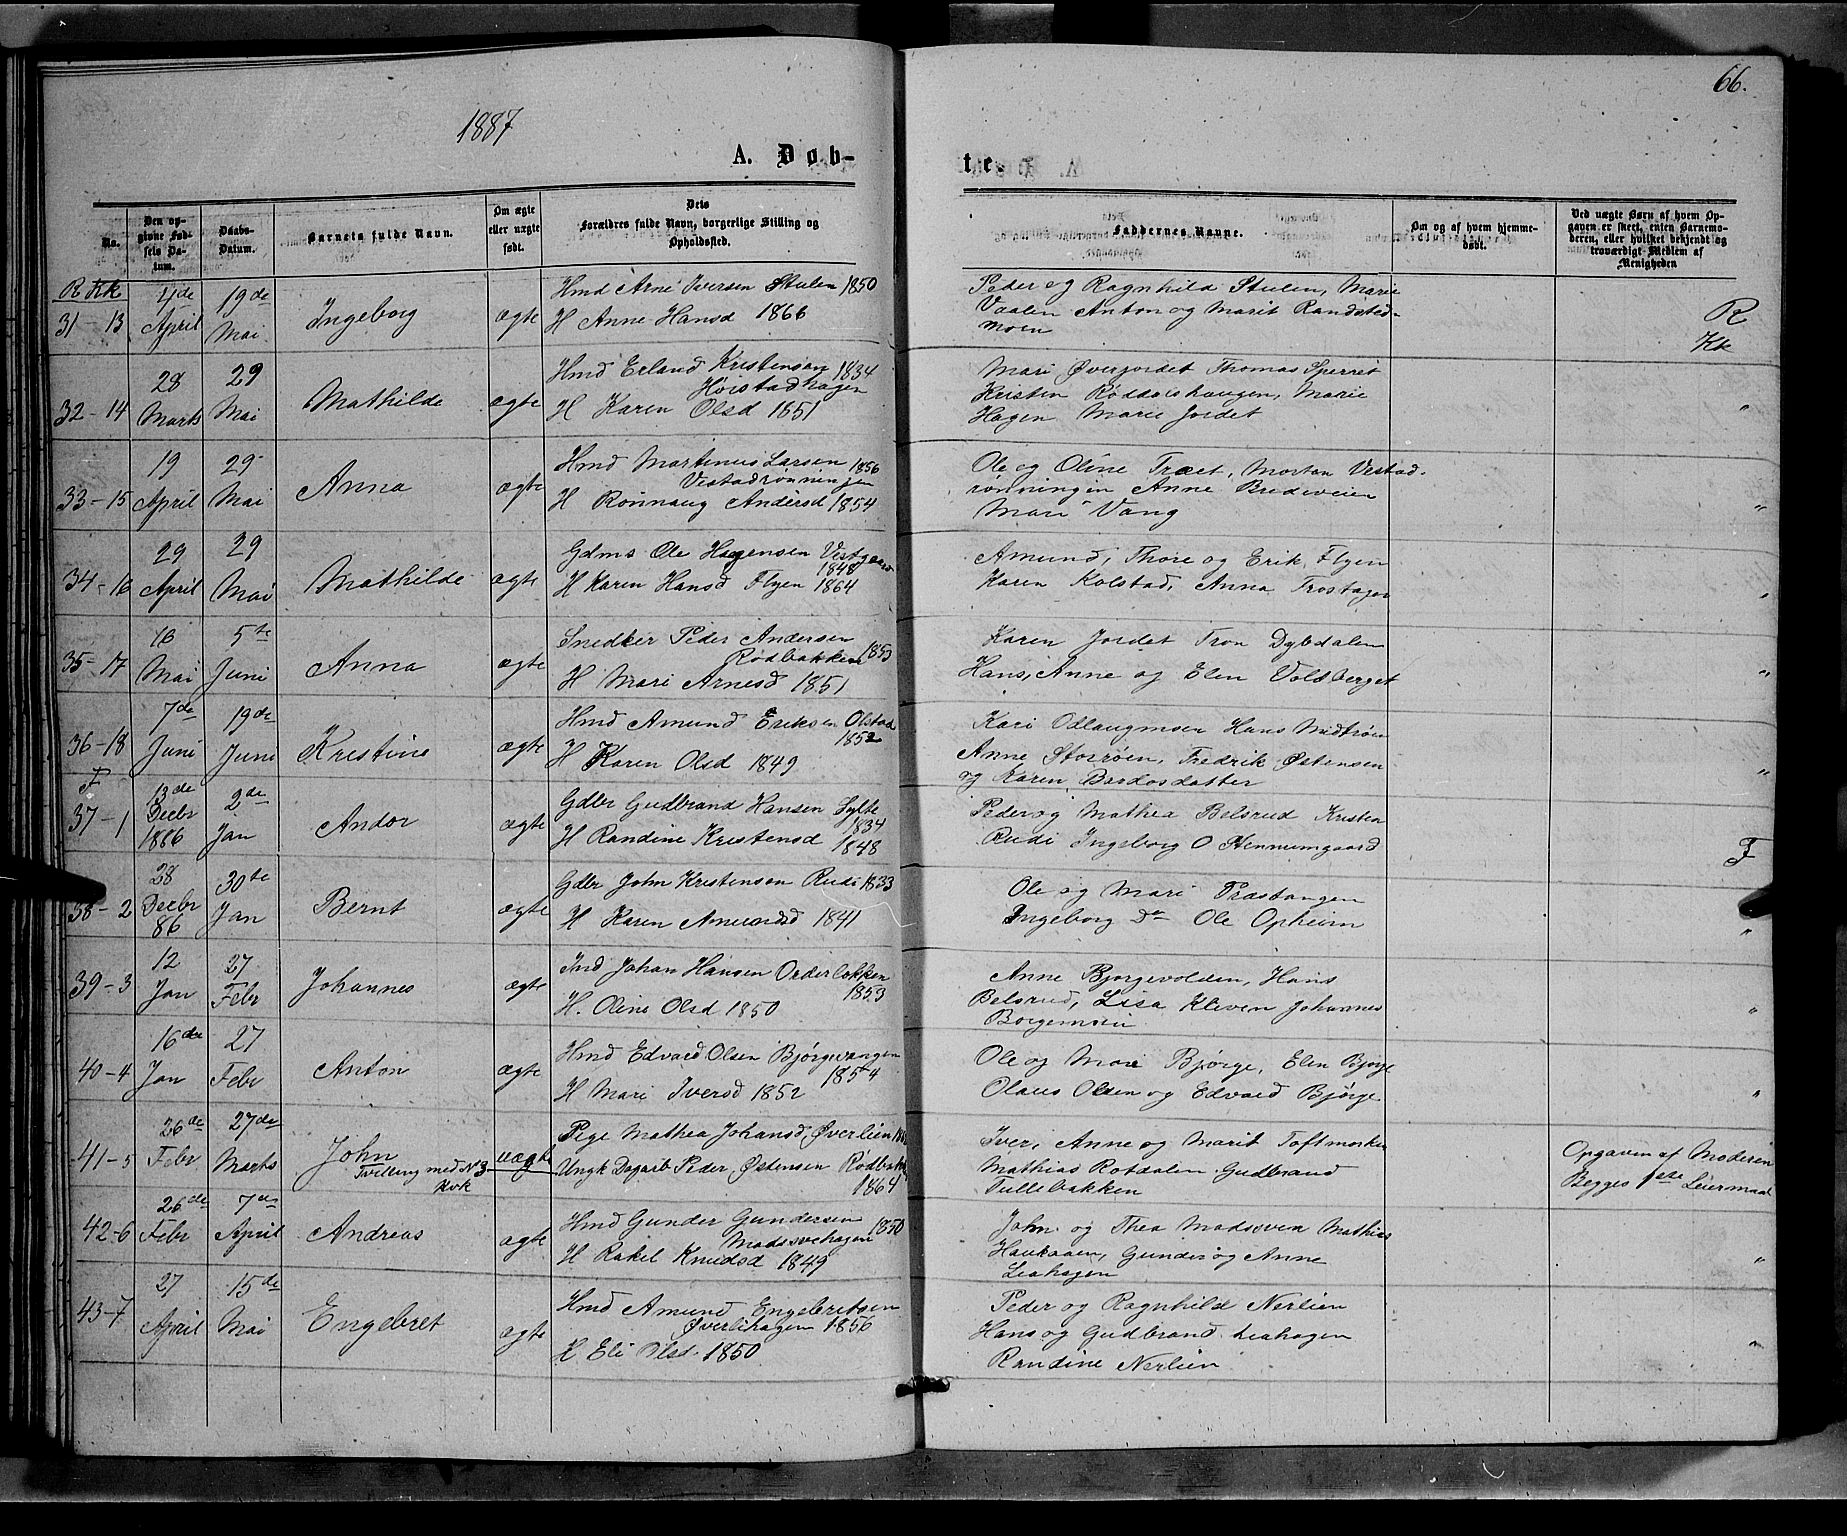 66.
1887
A. Døb-
te.
No.
Den opgivne Fødselsdatum.
Daabs-Datum.
Barnets fulde Navn.
Om ægte eller uægte født.
Dets Forældres fulde Navn, borgerlige Stilling og Opholdssted.
Faddernes Navne.
Om og af hvem hjemmedøbt.
Ved uægte Børn af hvem Opgaven er skeet, enten Barnemoderen, eller hvilket bekjendt og troværdigt Medlem af Menigheden
R Kk
31-13
April
19de Mai
Ingeborg
ægte
Hmd Arne Iversen Stulen 1850
H Anne Hansd 1866
Peder og Ragnhild Stulen, Marie
Vaalen Anton og Marit Randsted-
moen
R
Kk
32-14
28 Marts
29 Mai
Mathilde
ægte
Hmd Erland Kristensen 1834
Høistadhagen
H Karen Olsd 1851
Mari Øverjordet Thomas Sperret
Kristen Røddølshaugen, Marie
Hagen Marie Jordet
"
33-15
19 April
29 Mai
Anna
ægte
Hmd Martinus Larsen 1856
Vestadrønningen
H Rønnaug Andersd 1854
Ole og Oline Træet, Morten Vestad-
rønningen Anne Bredeveien
Mari Vang
"
34-16
29 April
29 Mai
Mathilde
ægte
Gdms Ole Hagensen Vestgaard
1848
H Karen Hansd Flyen 1864
Amund, Thore og Erik Flyen
Karen Kolstad, Anna Trostagen
"
35-17
16 Mai
5te Juni
Anna
ægte
Snedker Peder Andersen
Rødbakken 1853
H Mari Arnesd 1851
Karen Jordet Tron Dybdalen
Hans, Anne og Elen Voldberget
"
36-18
7de Juni
19de Juni
Kristine
ægte
Hmd Amund Eriksen Olstad
1852
H Karen Olsd 1849
Kari Odlaugmoen Hans Midtrøen
Anne Storrøen, Fredrik Østensen
og Karen Bardosdatter
"
F
37-1
13de Decbr 1886
2de Jan
Andor
ægte
Gdbr Gudbrand Hansen Sylte
1834
H Randine Kristensd 1848
Peder og Mathea Belsrud Kristen
Rudi Ingeborg O Hennumgaard
F
38-2
28 Decbr 86
30te Jan
Bernt
ægte
Gdbr John Kristensen Rudi 1833
H Karen Amundsd 1841
Ole og Mari Præstangen
Ingeborg Do Ole Opheim
"
39-3
12 Jan
27 Febr
Johannes
ægte
Ind Johan Hansen Odderbakken
1853
H. Oline Olsd 1850
Anne Bjorgevolden, Hans
Belsrud, Lisa Kleven Johannes
Borgemoen
"
40-4
16de Jan
27 Febr
Anton
ægte
Hmd Edvard Olsen Bjørgevangen
1854
H Mari Iversd 1852
Ole og Mari Bjørge, Elen Bjorge
Olaus Olsen og Edvard Bjørge
"
41-5
26de Febr
27de Marts
John
Tvilling med N 3
Kvk
uægte
Pige Mathea Johansd, Øverlien
Ungk Dagarb Peder Østensen Rodbakken
1864
Iver, Anne og Marit Toftmosken
Mathias Rotdalen Gudbrand
Tullebakken
Opgaven af Moderen
Begges 1ste Leiermaal
42-6
26de Febr
7de April
Andreas
ægte
Hmd Gunder Gundersen 1850
Madsvehagen
H Rakel Knudsd 1849
John og Thea Madssveen Mathias
Haukaaen, Gunder og Anne
Liahagen
"
43-7
27 April
15de Mai
Engebret
ægte
Hmd Amund Engebretsen
Øverlihagen 1856
H Eli Olsd 1850
Peder og Ragnhild Nerlien
Hans og Gudbrand Liahagen
Randine Nerlien
"